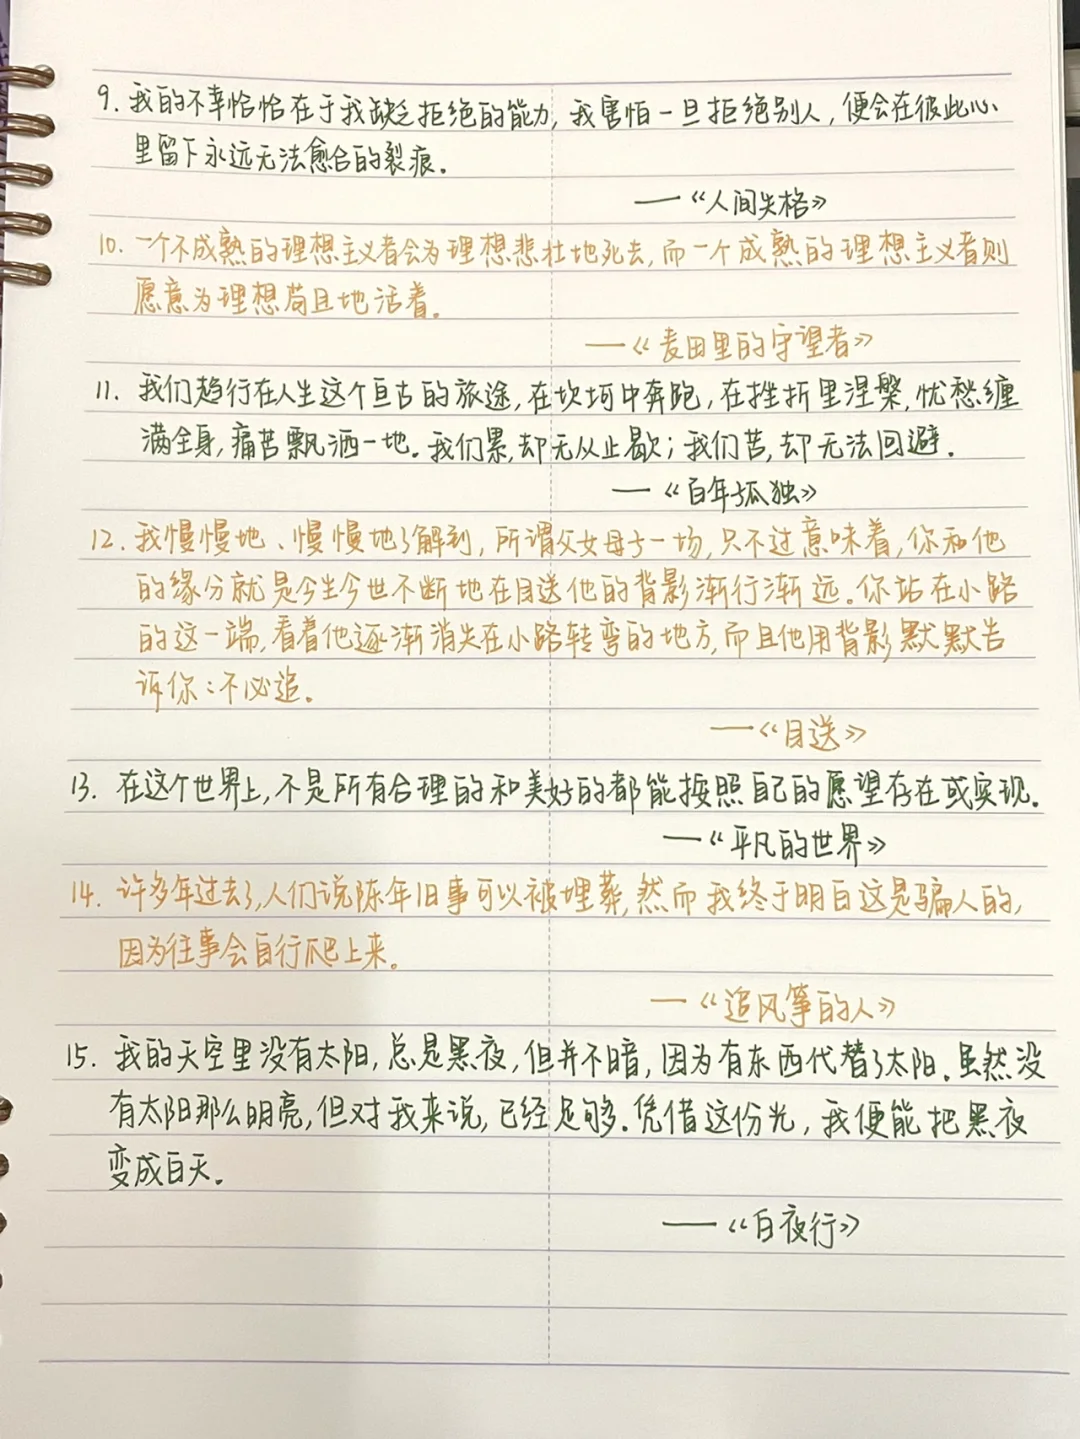 9. 我的不幸恰恰在于我缺乏拒绝的能力, 我害怕一旦拒绝别人, 便会在彼此心
里留下永远无法愈合的裂痕.
——《人间失格》
10. 一个不成熟的理想主义者会为理想悲壮地死去, 而一个成熟的理想主义者则
愿意为理想苟且地活着.
——《麦田里的守望者》
11. 我们趋行在人生这个亘古的旅途, 在坎坷中奔跑, 在挫折里涅槃, 忧愁缠
满全身, 痛苦飘洒一地. 我们累, 却无从止歇; 我们苦, 却无法回避.
——《百年孤独》
12. 我慢慢地、慢慢地了解到, 所谓父女母子一场, 只不过意味着, 你和他
的缘分就是今生今世不断地在目送他的背影渐行渐远. 你站在小路
的这一端, 看着他逐渐消失在小路转弯的地方, 而且他用背影默默告
诉你: 不必追.
——《目送》
13. 在这个世界上, 不是所有合理的和美好的都能按照自己的愿望存在或实现.
——《平凡的世界》
14. 许多年过去了, 人们说陈年旧事可以被埋葬, 然而我终于明白这是骗人的,
因为往事会自行爬上来.
——《追风筝的人》
15. 我的天空里没有太阳, 总是黑夜, 但并不暗, 因为有东西代替了太阳. 虽然没
有太阳那么明亮, 但对我来说, 已经足够. 凭借这份光, 我便能把黑夜
变成白天.
——《白夜行》